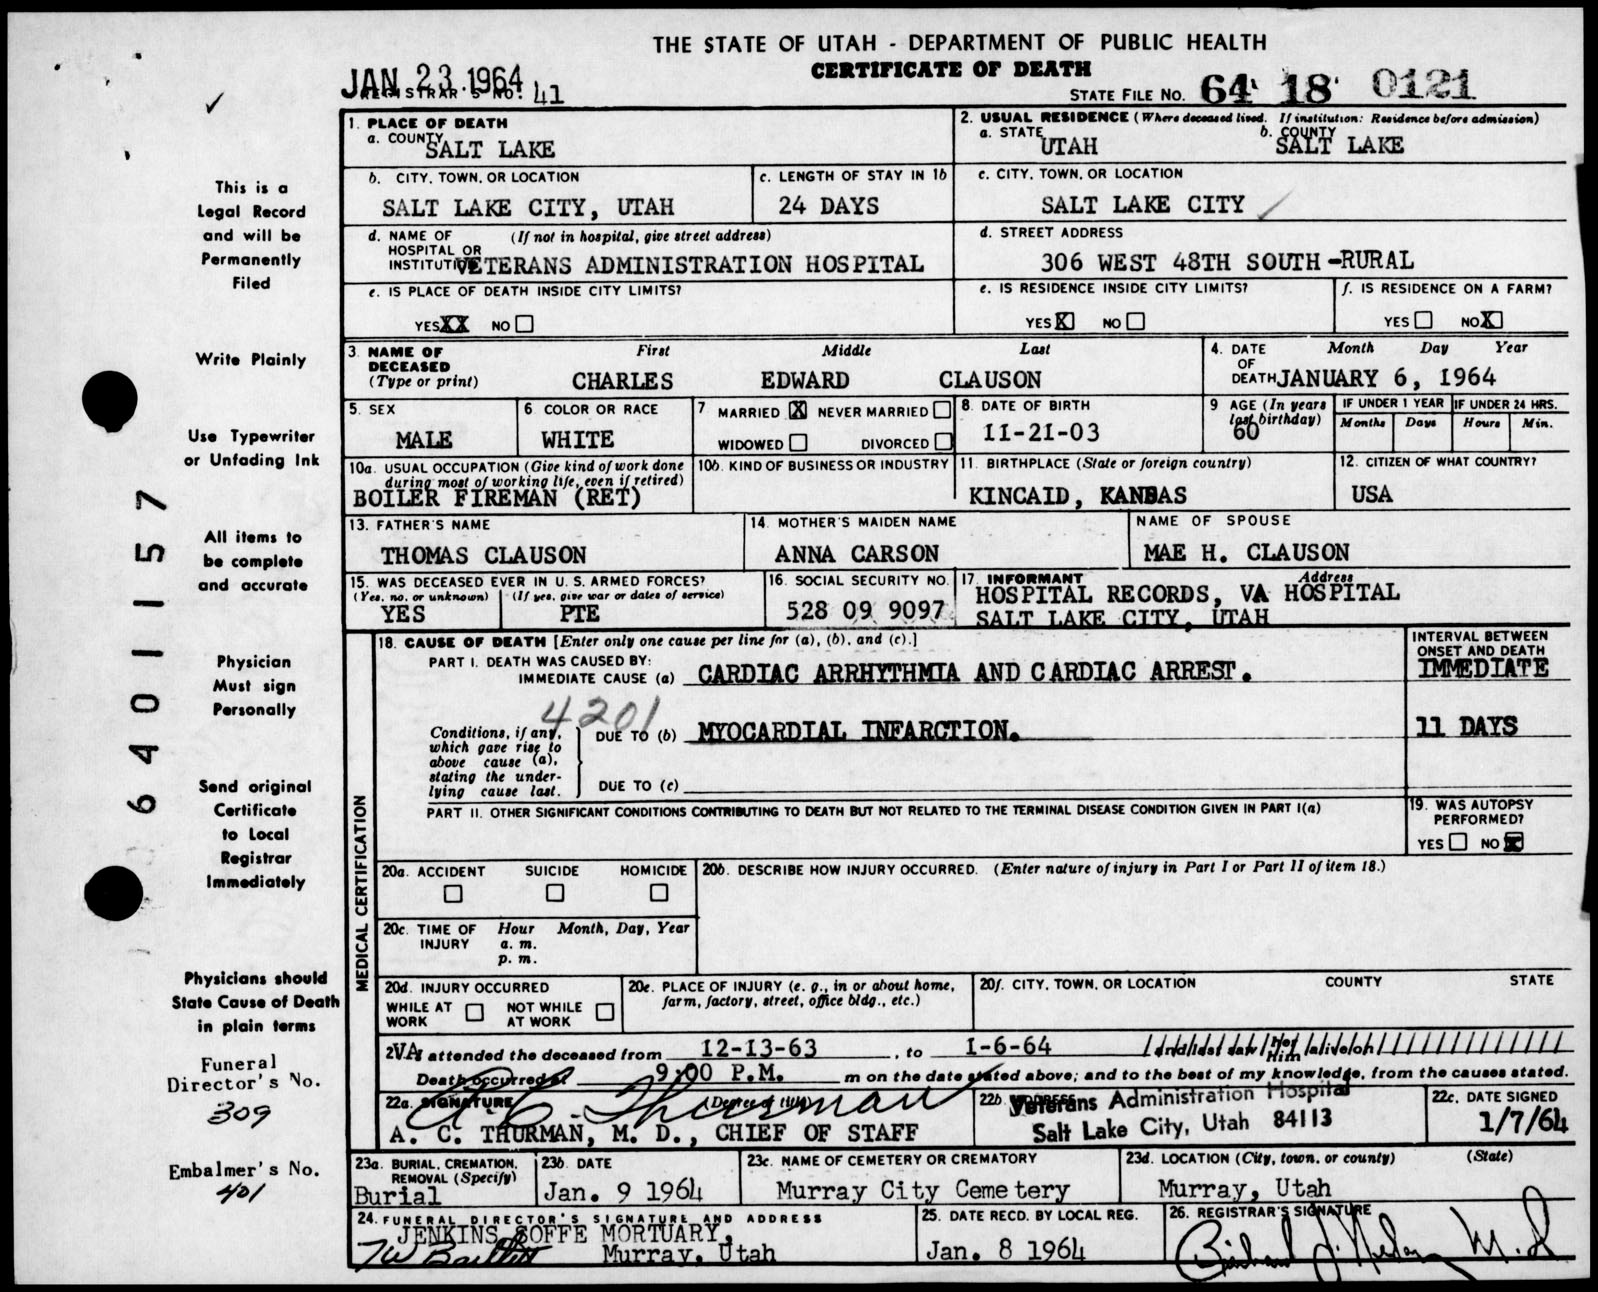 THE STATE OF UTAH - DEPARTMENT OF PUBLIC HEALTH
CERTIFICATE OF DEATH
JAN 23 1964
REGISTRAR'S NO. 41
STATE FILE NO. 64 18 0121
1. PLACE OF DEATH
a. COUNTY
SALT LAKE
2. USUAL RESIDENCE (Where deceased lived. If institution: Residence before admission)
a. STATE
UTAH
b. COUNTY
SALT LAKE
b. CITY, TOWN, OR LOCATION
SALT LAKE CITY, UTAH
c. LENGTH OF STAY IN 1b
24 DAYS
c. CITY, TOWN, OR LOCATION
SALT LAKE CITY
d. NAME OF HOSPITAL OR INSTITUTION (If not in hospital, give street address)
VETERANS ADMINISTRATION HOSPITAL
d. STREET ADDRESS
306 WEST 48TH SOUTH-RURAL
e. IS PLACE OF DEATH INSIDE CITY LIMITS?
YES XX NO
e. IS RESIDENCE INSIDE CITY LIMITS?
YES X NO
f. IS RESIDENCE ON A FARM?
YES NO X
3. NAME OF DECEASED
(Type or print)
First Middle Last
CHARLES EDWARD CLAUSON
4. DATE OF DEATH
Month Day Year
JANUARY 6, 1964
5. SEX
MALE
6. COLOR OR RACE
WHITE
7 MARRIED X NEVER MARRIED
WIDOWED DIVORCED
8. DATE OF BIRTH
11-21-03
9 AGE (In years last birthday)
60
IF UNDER 1 YEAR
Months Days
IF UNDER 24 HRS.
Hours Min.
10a. USUAL OCCUPATION (Give kind of work done
during most of working life, even if retired)
BOILER FIREMAN (RET)
10b. KIND OF BUSINESS OR INDUSTRY
11. BIRTHPLACE (State or foreign country)
KINCAID, KANSAS
12. CITIZEN OF WHAT COUNTRY?
USA
13. FATHER'S NAME
THOMAS CLAUSON
14. MOTHER'S MAIDEN NAME
ANNA CARSON
NAME OF SPOUSE
MAE H. CLAUSON
15. WAS DECEASED EVER IN U. S. ARMED FORCES?
(Yes, no, or unknown) (If yes, give war or dates of service)
YES PTE
16. SOCIAL SECURITY NO.
528 09 9097
17. INFORMANT Address
HOSPITAL RECORDS, VA HOSPITAL
SALT LAKE CITY, UTAH
MEDICAL CERTIFICATION
18. CAUSE OF DEATH [Enter only one cause per line for (a), (b), and (c).]
PART I. DEATH WAS CAUSED BY:
IMMEDIATE CAUSE (a) CARDIAC ARRHYTHMIA AND CARDIAC ARREST.
INTERVAL BETWEEN ONSET AND DEATH
IMMEDIATE
4201
Conditions, if any, which gave rise to above cause (a), stating the underlying cause last.
DUE TO (b) MYOCARDIAL INFARCTION.
11 DAYS
DUE TO (c)
PART II. OTHER SIGNIFICANT CONDITIONS CONTRIBUTING TO DEATH BUT NOT RELATED TO THE TERMINAL DISEASE CONDITION GIVEN IN PART I(a)
19. WAS AUTOPSY PERFORMED?
YES NO X
20a. ACCIDENT SUICIDE HOMICIDE
20b. DESCRIBE HOW INJURY OCCURRED. (Enter nature of injury in Part I or Part II of item 18.)
20c. TIME OF INJURY
Hour Month, Day, Year
a. m.
p. m.
20d. INJURY OCCURRED
WHILE AT WORK NOT WHILE AT WORK
20e. PLACE OF INJURY (e. g., in or about home, farm, factory, street, office bldg., etc.)
20f. CITY, TOWN, OR LOCATION COUNTY STATE
VA attended the deceased from 12-13-63, to 1-6-64 and last saw her him alive on
Death occurred at 9:00 P.M. m on the date stated above; and to the best of my knowledge, from the causes stated.
22a. SIGNATURE (Degree or title)
A. C. Thurman
A. C. THURMAN, M. D., CHIEF OF STAFF
22b. ADDRESS
Veterans Administration Hospital
Salt Lake City, Utah 84113
22c. DATE SIGNED
1/7/64
23a. BURIAL, CREMATION, REMOVAL (Specify)
Burial
23b. DATE
Jan. 9 1964
23c. NAME OF CEMETERY OR CREMATORY
Murray City Cemetery
23d. LOCATION (City, town, or county) (State)
Murray, Utah
24. FUNERAL DIRECTOR'S SIGNATURE AND ADDRESS
JENKINS SOFFE MORTUARY,
Murray, Utah
25. DATE RECD. BY LOCAL REG.
Jan. 8 1964
26. REGISTRAR'S SIGNATURE
M.D.
This is a
Legal Record
and will be
Permanently
Filed
Write Plainly
Use Typewriter
or Unfading Ink
All items to
be complete
and accurate
Physician
Must sign
Personally
Send original
Certificate
to Local
Registrar
Immediately
Physicians should
State Cause of Death
in plain terms
Funeral
Director's No.
309
Embalmer's No.
401
6401157